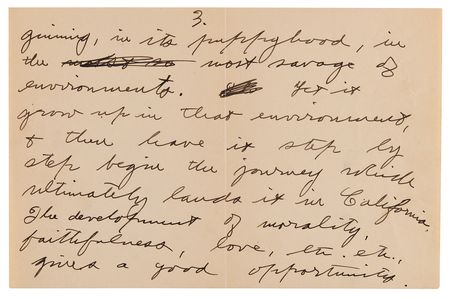 3.
ginning, in its puppyhood, in
the most savage of
environments. Let it
grow up in that environment,
& then have it step by
step begin the journey which
ultimately lands it in California.
The development of morality,
faithfulness, love, etc. etc.,
gives a good opportunity.